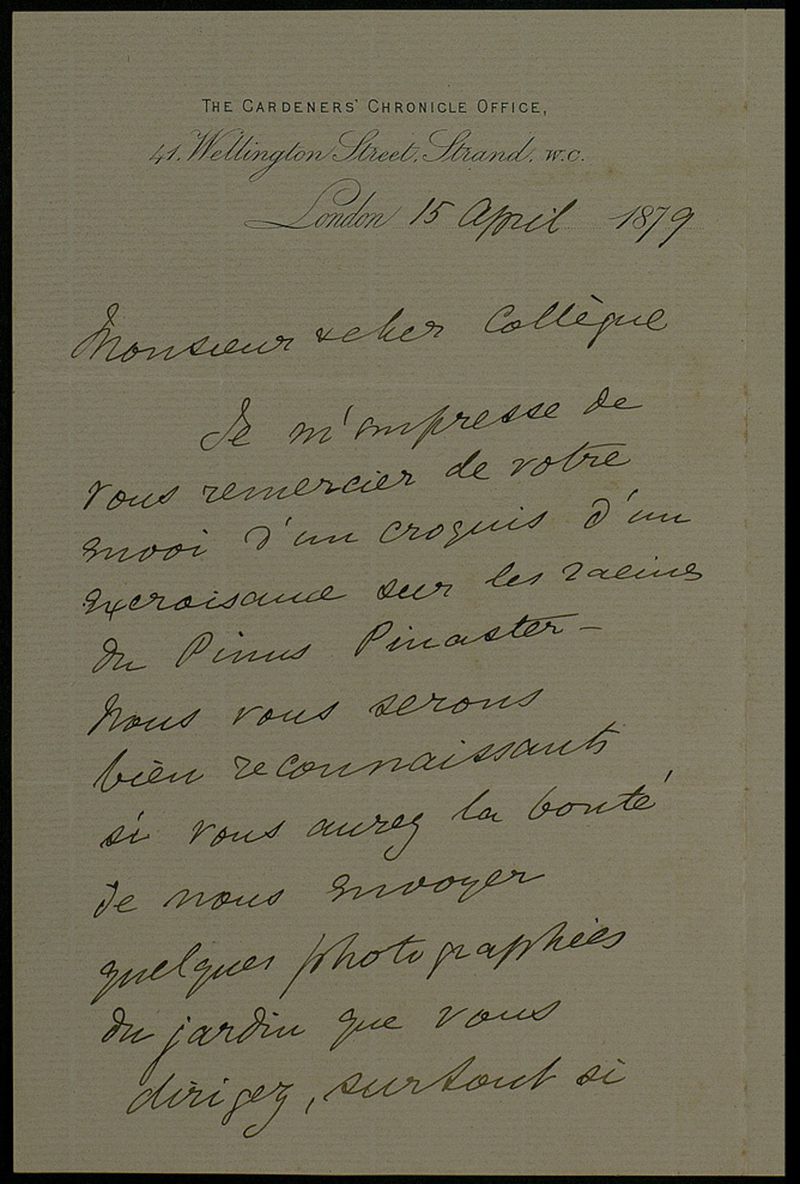 THE GARDENERS' CHRONICLE OFFICE,
41, Wellington Street, Strand, W.C.
London 15 April 1879
Monsieur & cher Collègue
Je m'empresse de
vous remercier de votre
envoi d'un croquis d'un
excroisance sur les racines
du Pinus Pinaster –
Nous vous serons
bien reconnaissants
si vous aurez la bonté
de nous envoyer
quelques photographies
du jardin que vous
dirigez, surtout si